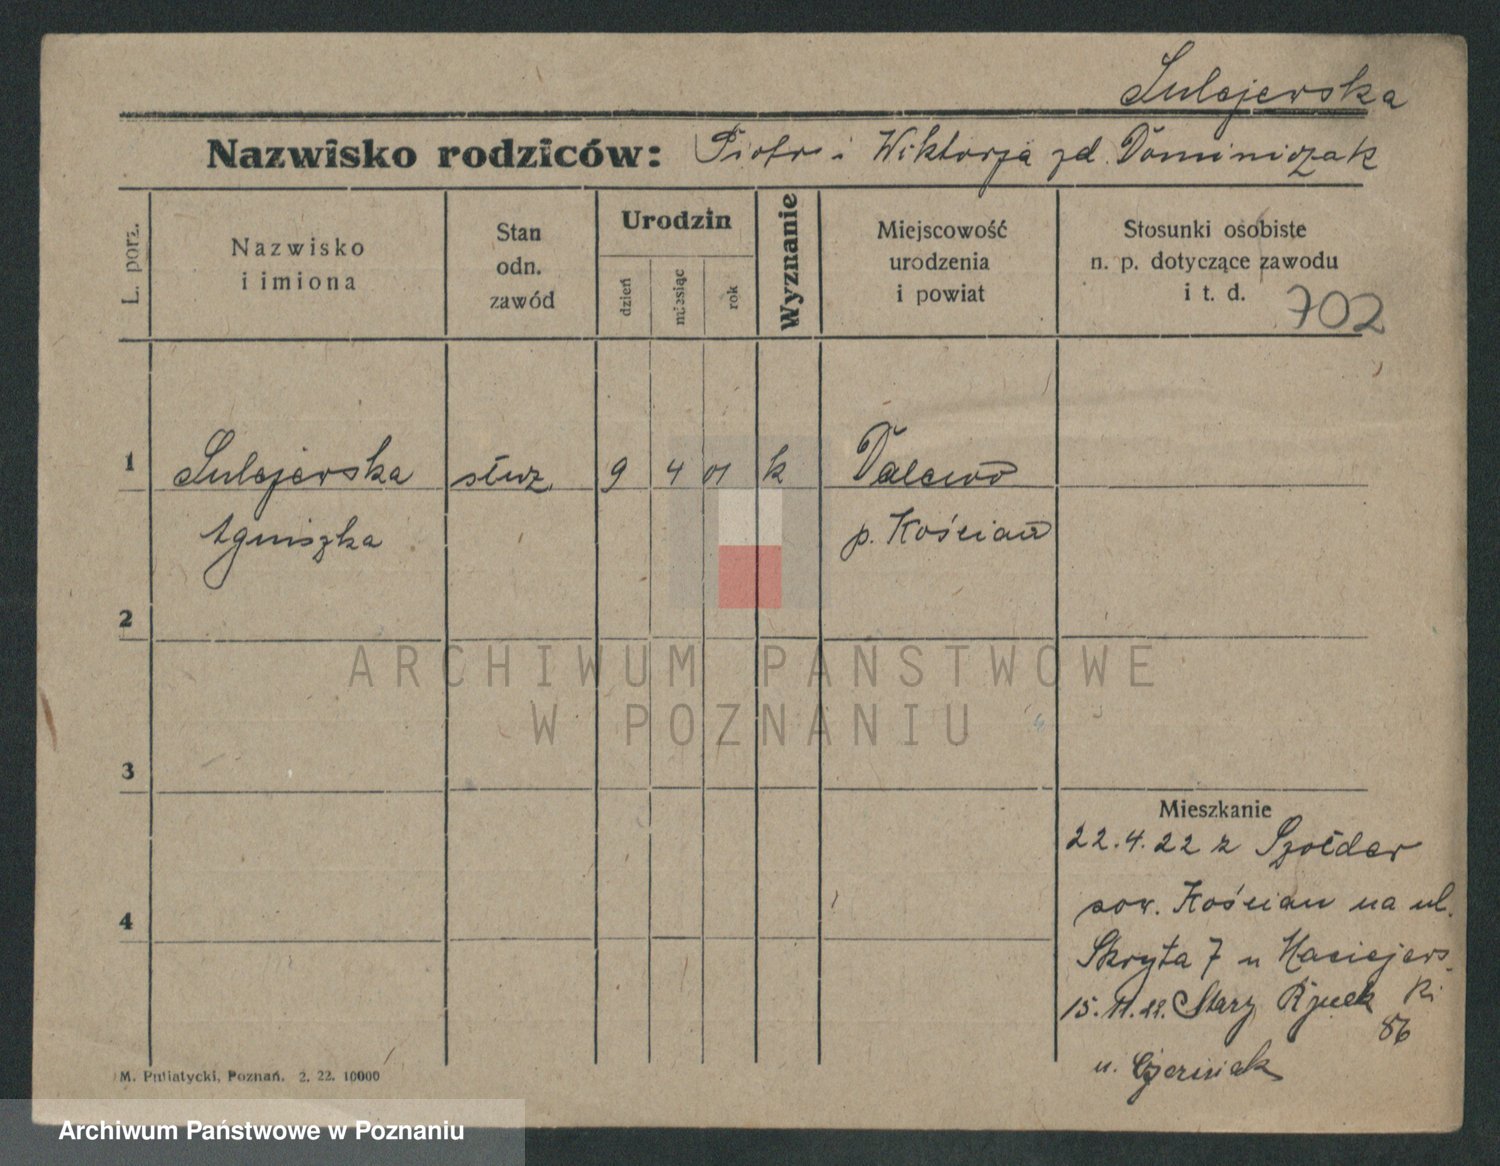 Sulejewska
Nazwisko rodziców: Piotr i Wiktorja zd. Dominiczak
L. porz.
Nazwisko
i imiona
Stan
odn.
zawód
Urodzin
dzień
miesiąc
rok
Wyznanie
Miejscowość
urodzenia
i powiat
Stosunki osobiste
n. p. dotyczące zawodu
i t. d.
702
1 Sulejewska służ. 9 4 01 k Dalewo
Agniszka p. Kościan
2
ARCHIWUM PAŃSTWOWE
W POZNANIU
3
Mieszkanie
22.4.22 z Szołdr
pow. Kościan na ul.
4
Skryta 7 u Maciejews
ki
15.11.22. Stary Rynek
86
u. Czerniak
M. Putiatycki, Poznań. 2. 22. 10000
Archiwum Państwowe w Poznaniu